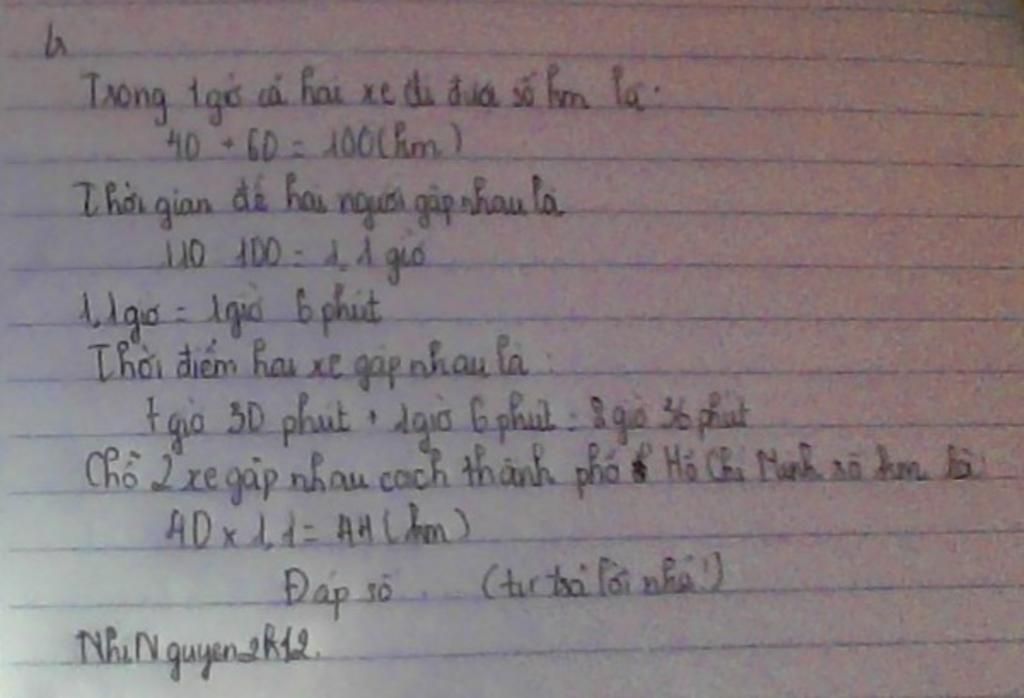 Trong 1 giờ cả hai xe đi được số km là:
40 + 60 = 100 (km)
Thời gian để hai người gặp nhau là
110 100 = 1,1 giờ
1,1 giờ = 1 giờ 6 phút
Thời điểm hai xe gặp nhau là:
7 giờ 30 phút + 1 giờ 6 phút = 8 giờ 36 phút
Chỗ 2 xe gặp nhau cách thành phố Hồ Chí Minh số km là:
40 x 1,1 = 44 (km)
Đáp số (tự trả lời nhá!)
NhiNguyen2k12.